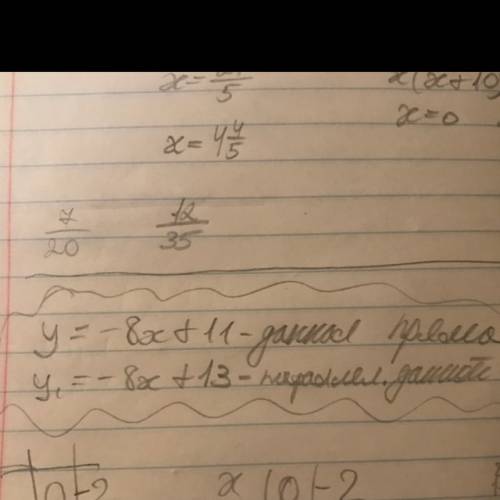 x =
5
x(x+10)
x = 4 4/5
x=0
7/20 12/35
y = -8x + 11 - данная прямо
y₁ = -8x + 13 - параллел. данной
0 | -2
x | 0 | -2